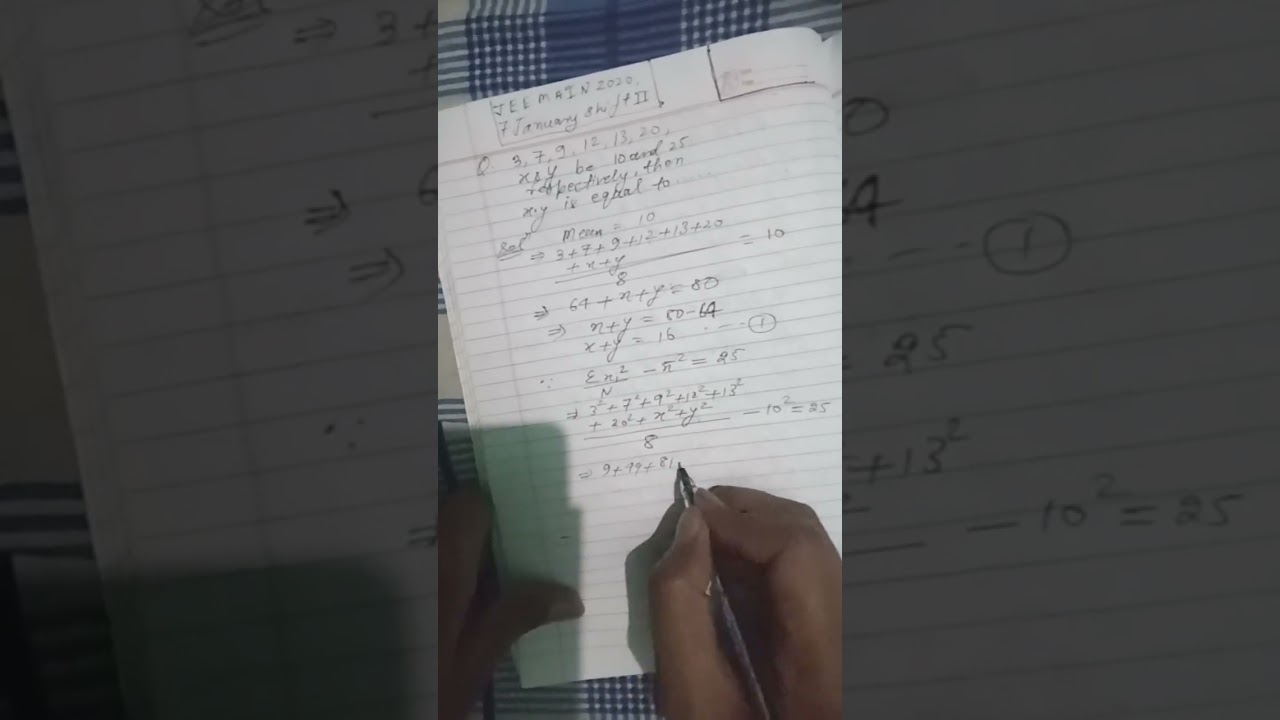 JEE MAIN 2020,
7 January Shift II
Q. 3, 7, 9, 12, 13, 20,
x & y be 10 and 25
respectively, then
x.y is equal to.....
Solⁿ Mean = 10
⇒ 3+7+9+12+13+20
+x+y
8
= 10
⇒ 64+x+y=80
⇒ x+y = 80-64
x+y = 16 .--- ①
∵ Σxi²/N - x̄² = 25
⇒ 3²+7²+9²+12²+13²
+ 20²+x²+y²
8
- 10² = 25
⇒ 9+49+81